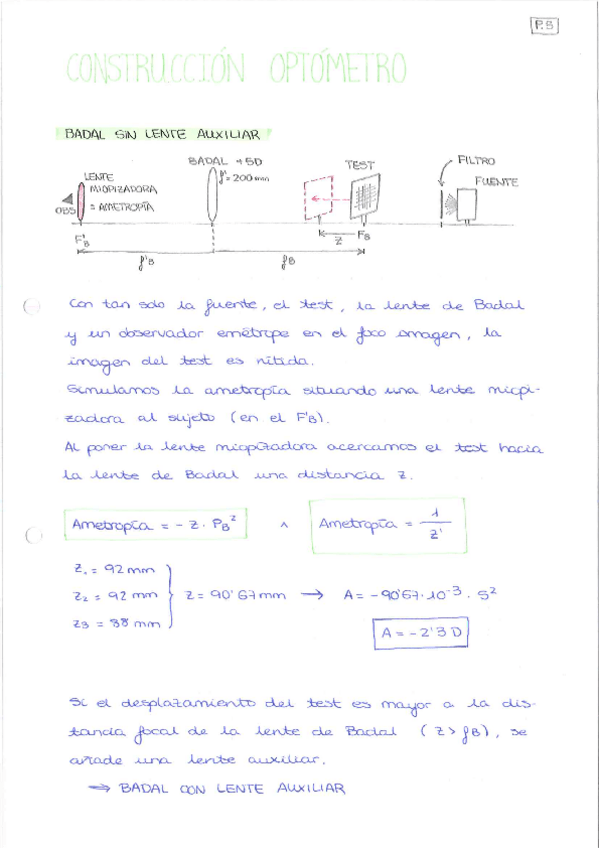 P.5
CONSTRUCCIÓN OPTÓMETRO
BADAL SIN LENTE AUXILIAR
BADAL +5D
f'=200mm
TEST
FILTRO
FUENTE
LENTE
MIOPIZADORA
= AMETROPÍA
OBS
F'B
Z
FB
f'B
fB
Con tan solo la fuente, el test, la lente de Badal
y un observador emétrope en el foco imagen, la
imagen del test es nítida.
Simulamos la ametropía situando una lente miopi-
zadora al sujeto (en el F'B).
Al poner la lente miopizadora acercamos el test hacia
la lente de Badal una distancia z.
Ametropía = - z · PB² ^ Ametropía = 1/z'
Z1 = 92 mm
Z2 = 92 mm } Z = 90'67 mm → A = -90'67·10⁻³ · 5²
Z3 = 88 mm
A = -2'3 D
Si el desplazamiento del test es mayor a la dis-
tancia focal de la lente de Badal (z > fB), se
añade una lente auxiliar.
→ BADAL CON LENTE AUXILIAR